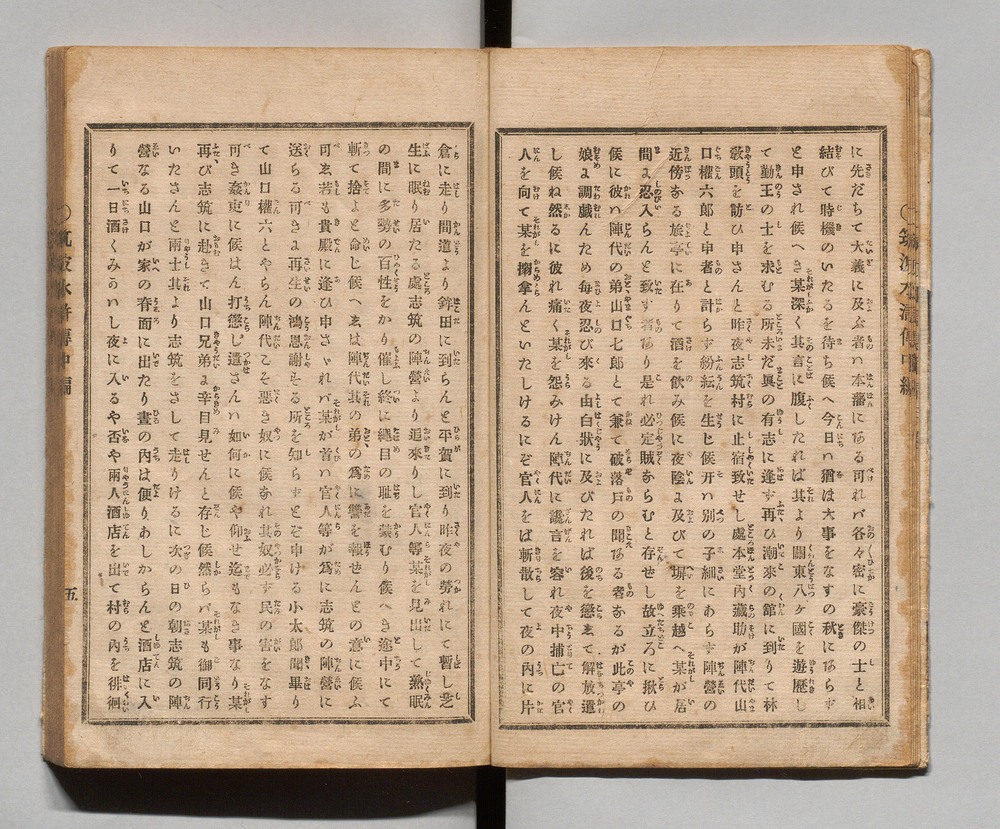 に先だちて大義に及ぶ者ハ本藩にある可れバ各々密に豪傑の士と相
結びて時機のいたるを待ち候へ今日ハ猶ほ大事をなすの秋にあらず
と申され候へき某深く其言に腹したれば其より關東八ヶ國を遊歷し
て勤王のしを求むる所未だ眞の有志に逢ず再ひ潮來の館に到りて林
敎頭を訪ひ申さんと昨夜志筑村に止宿致せし處本堂内藏助が陣代山
口權六郎と申者と計らす紛紜を生ヒ候开ハ別の子細にあらす陣營の
近傍なる旅亭に在りて酒を飮み候に夜陰よ及びて塀を乘越へ某が居
間よ忍入らんと致す者あり是れ必定賊ならむと存せし故立ろに揿ひ
候に彼ハ陣代の弟山口七郎とて兼て破落戸の聞ある者なるが此亭の
娘よ調戯んため每夜忍び來る由白狀に及びたれば後を懲ゑて解放遣
し候ね然るに彼れ痛く某を怨みけん陣代に讒言を容れ夜中捕亡の官
人を向て某を搦拿んといたしけるにぞ官人をば斬散して夜の內に片
倉に走り間道より鉾田に到らんと平賀に到り昨夜の勞れにて暫し芝
生に眠り居たる處志筑の陣營より追來りし官人等某を見出して熟眠
の間に多勢の百性をかり催し終に繩目の耻を蒙むり候へき途中にて
斬て捨よと命じ候へゑは陣代其の弟の爲に讐を報せんとの意に候ふ
可ゑ若も貴殿に逢ひ申さゞれバ某が首ハ官人等が爲に志筑の陣營に
送らる可きよ再生の鴻恩謝もる所を知らすとぞ申ける小太郎聞畢り
て山口權六とやらん陣代こそ惡き奴に候なれ其奴必ず民の害をなす
可き姦吏に候はん打懲し遣さんハ如何に候や仰せ迄もなき事なり某
再び志筑に赴きて山口兄弟よ辛目見せんと存じ候然らバ某も御同行
いたさんと兩士其より志筑をさして走りけるに次の日の朝志筑の陣
營なる山口が家の舂面に出たり晝の內は便りあしからんと酒店に入
りて一日酒くみかハし夜に入るや否や兩人酒店を出て村の內を徘徊
五